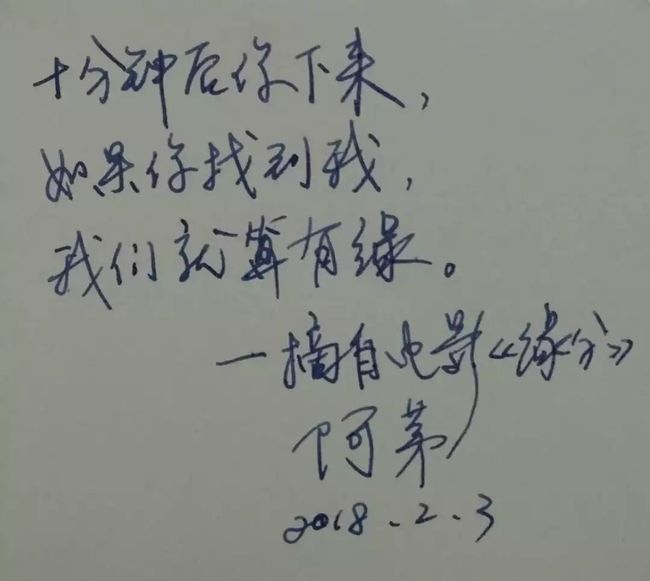 十分钟后你下来，
如果你找到我，
我们就算有缘。
一摘自电影《缘分》
阿茀
2018.2.3